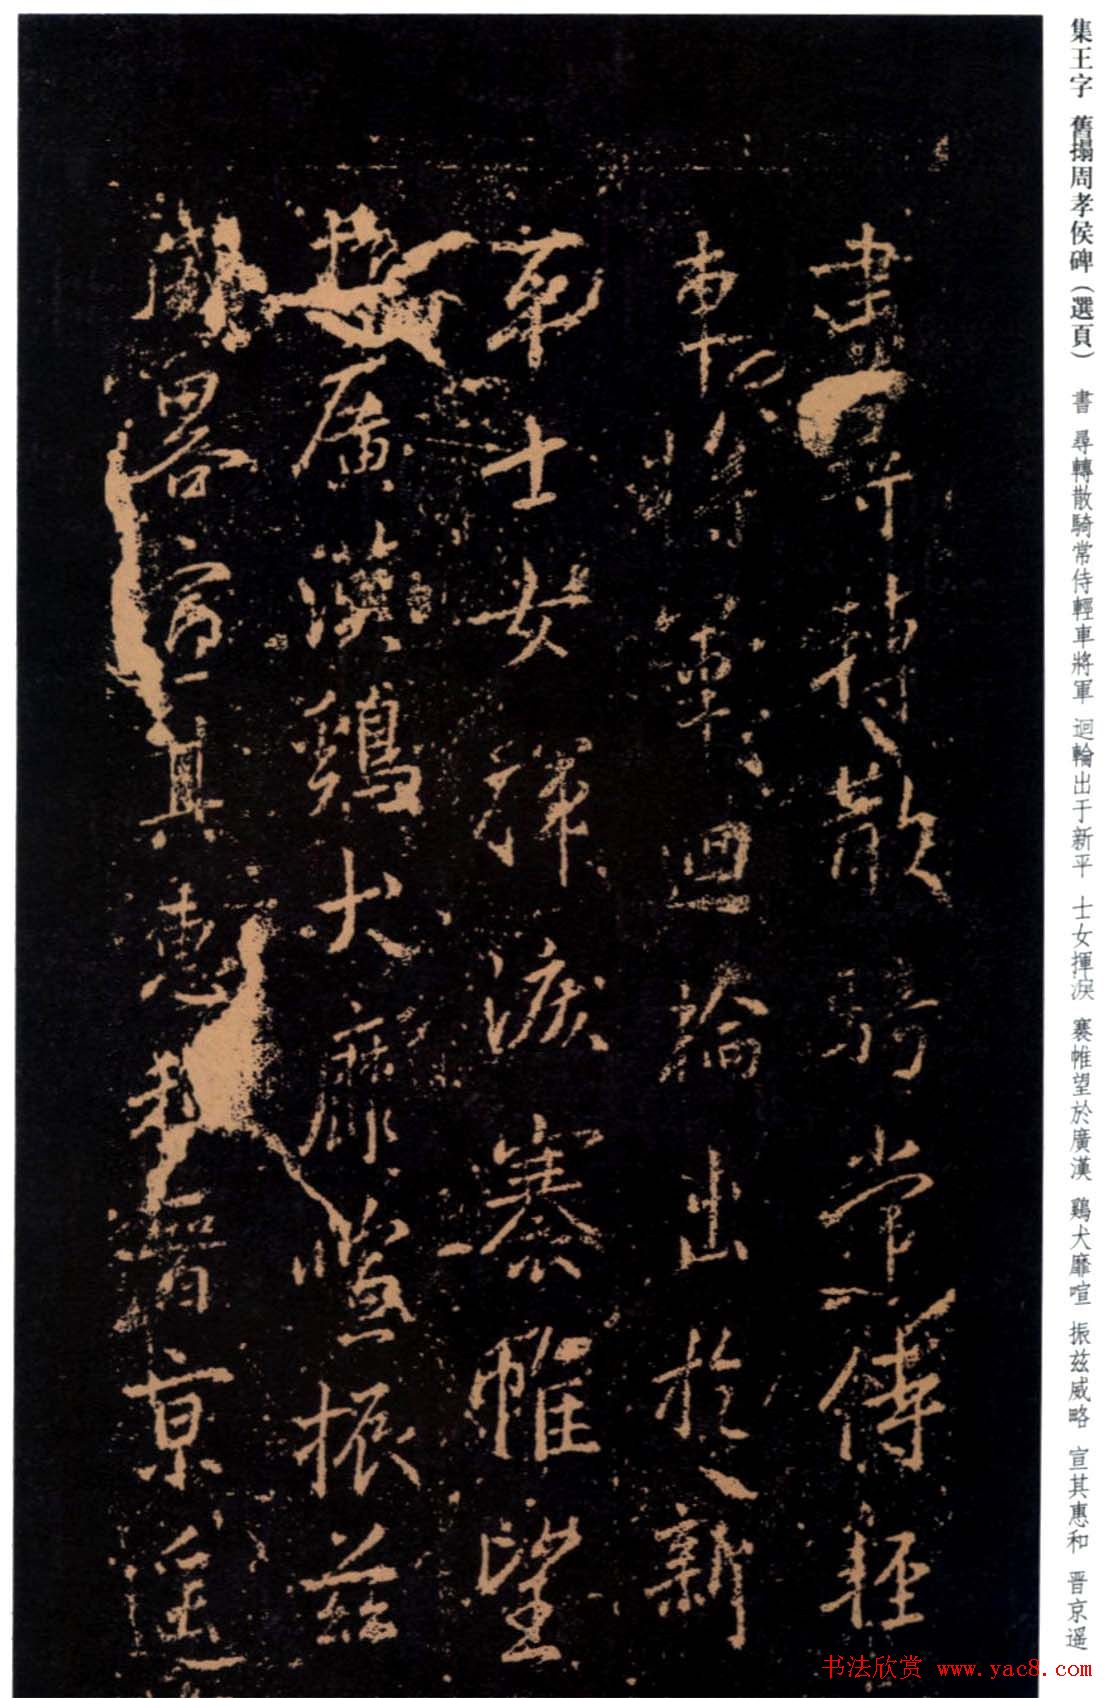 集王字 舊搨周孝侯碑（選頁） 書 尋轉散騎常侍輕車將軍 迴輪出于新平 士女揮淚 褰帷望於廣漢 鷄犬靡喧 振兹威略 宣其惠和 晋京遥
書尋轉散騎常侍輕
車將軍迴輪出於新
平士女揮淚褰帷望
於廣漢鷄犬靡喧振茲
威畧宣其惠和晋京遥
书法欣赏 www.yac8.com